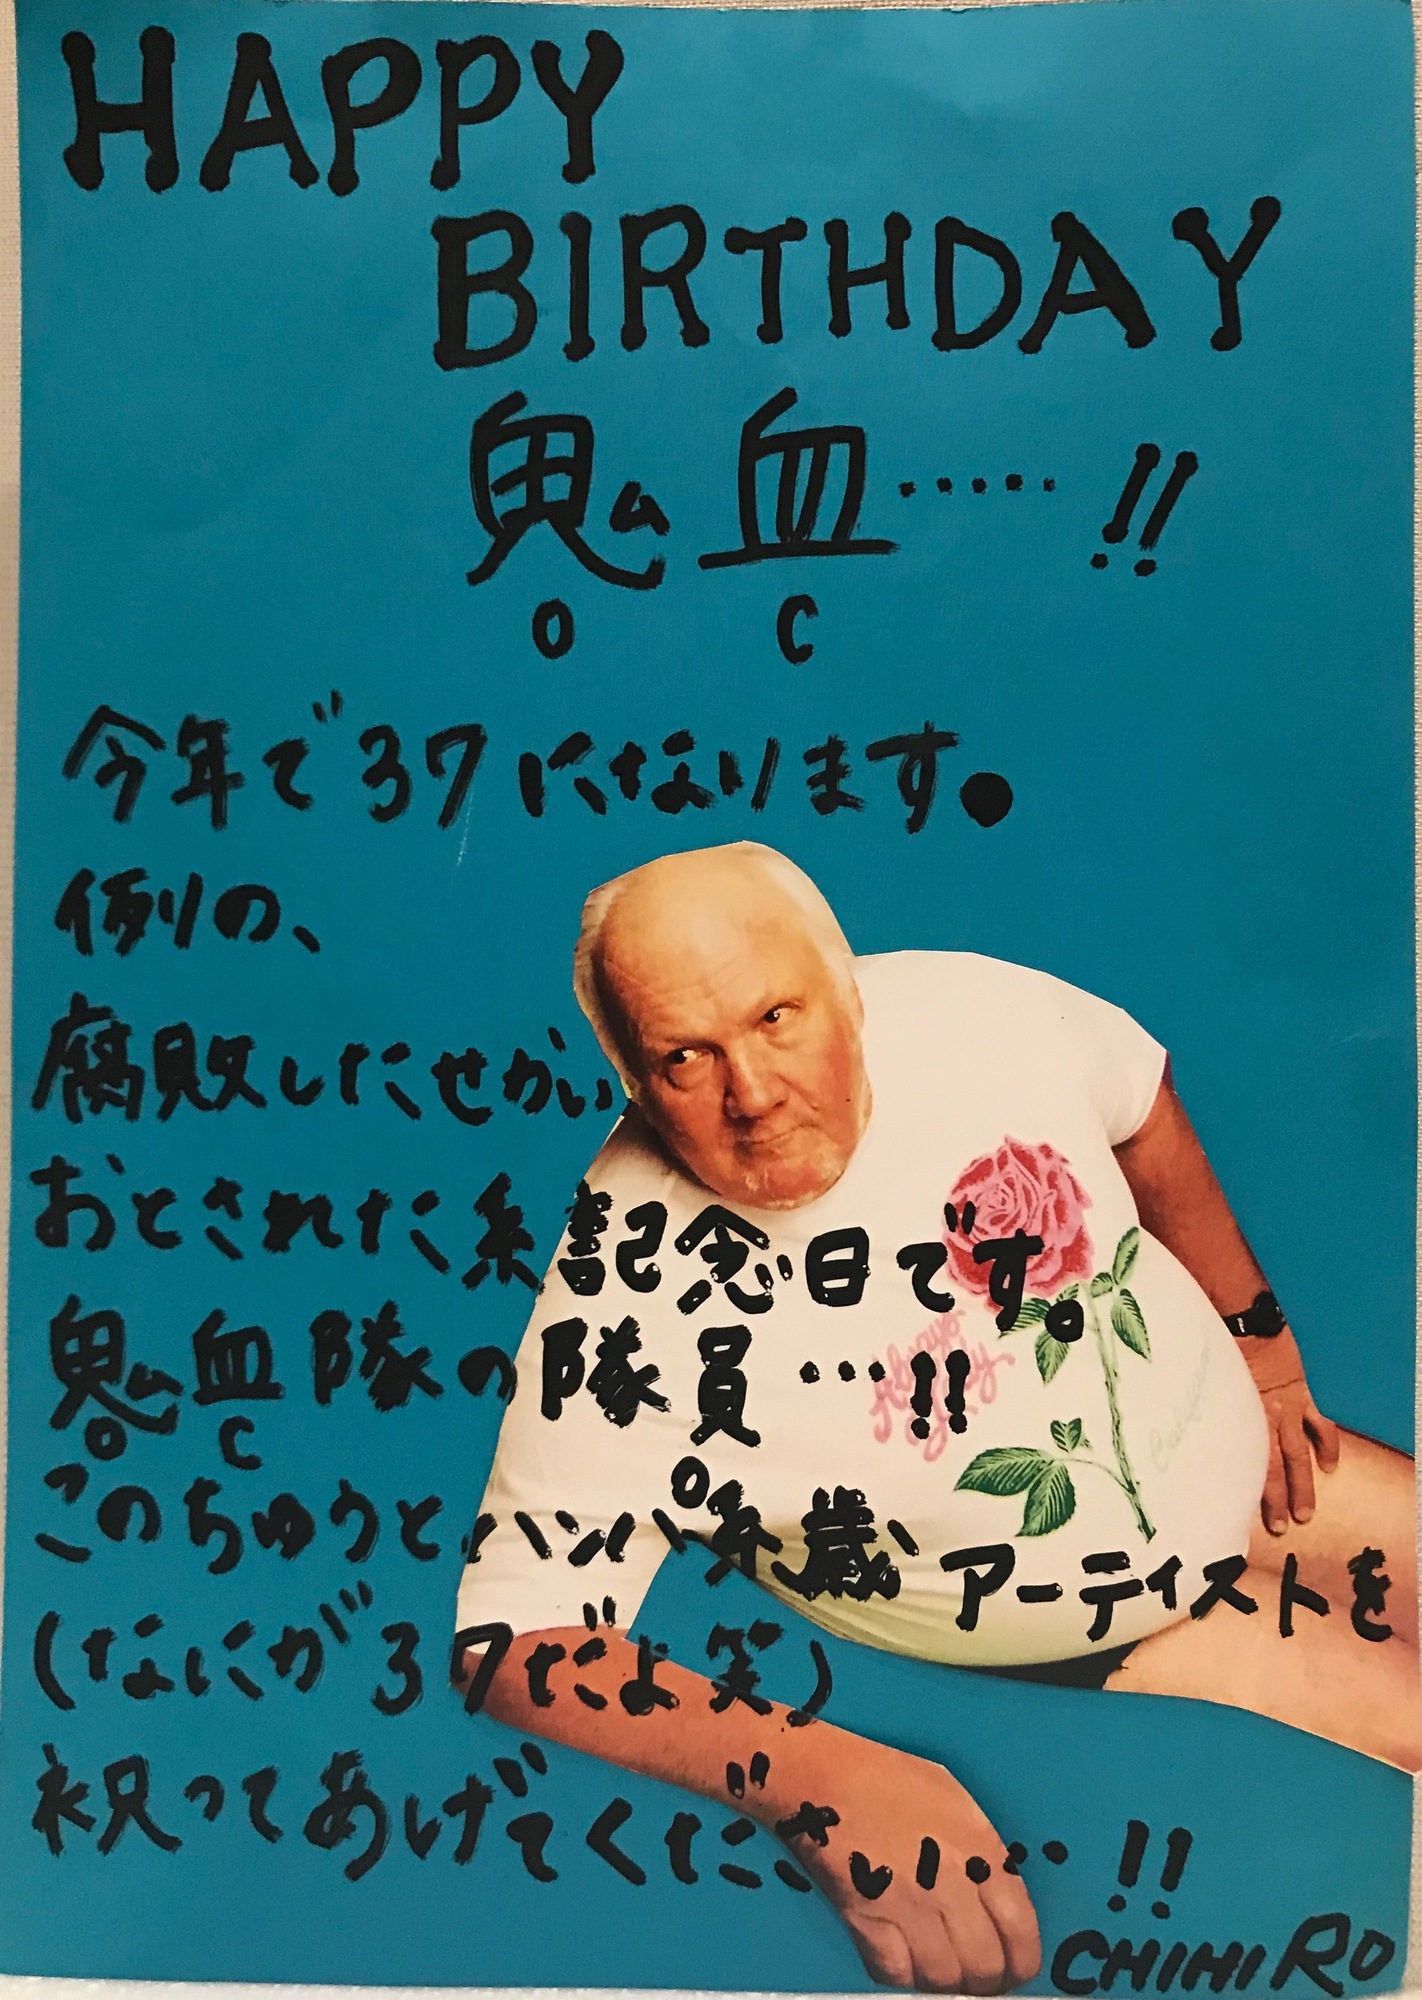 HAPPY
BIRTHDAY
鬼血‥‥‥!!
O C
今年で37になります。
例の、
腐敗したせかい
おとされた系記念日です。
鬼血隊の隊員‥‥!!
O C
このちゅうとハンパ系歳、アーティストを
(なにが37だよ笑)
祝ってあげてください‥‥!!
CHIHIRO